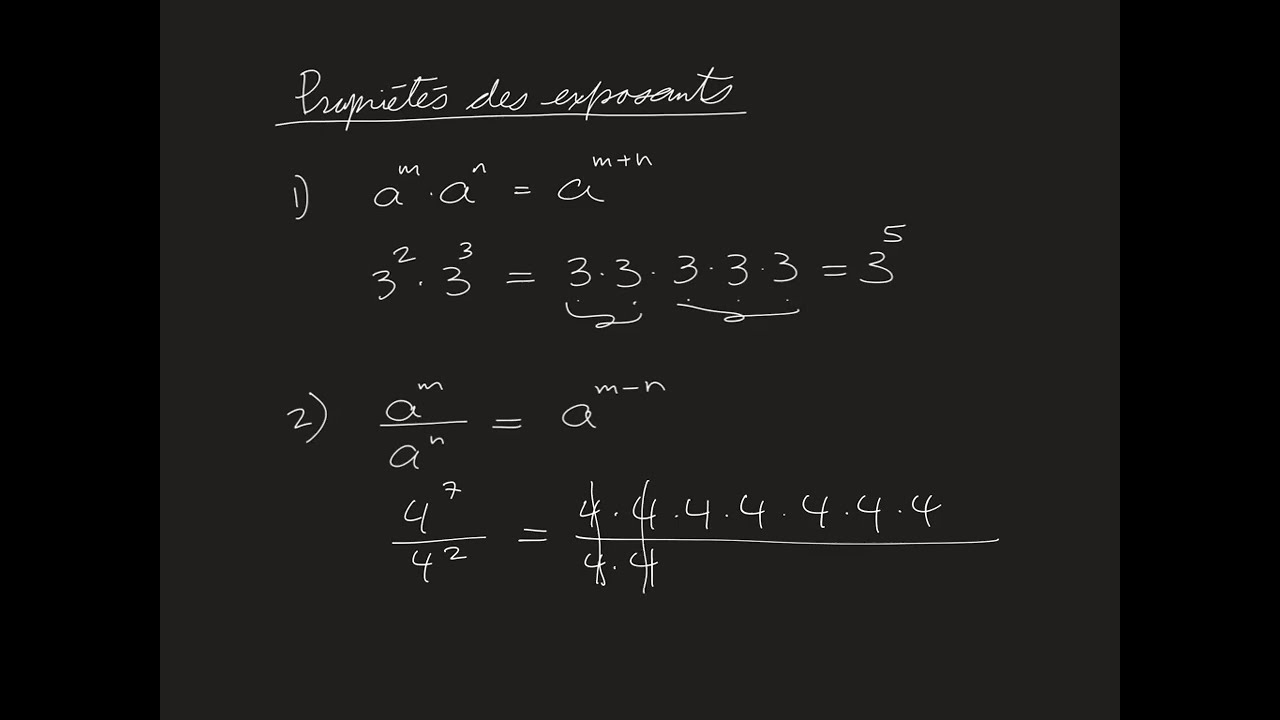 Propriétés des exposants
1) a^m · a^n = a^{m+n}
3^2 · 3^3 = 3 · 3 · 3 · 3 · 3 = 3^5
2) a^m / a^n = a^{m-n}
4^7 / 4^2 = 4 · 4 · 4 · 4 · 4 · 4 · 4 / 4 · 4